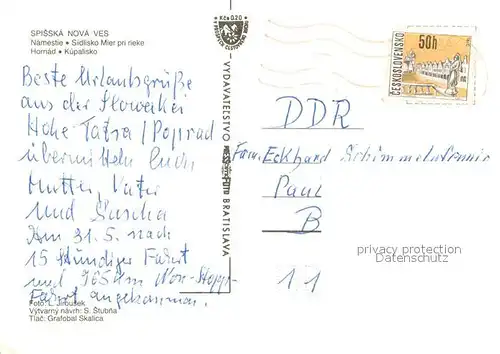 SPIŠSKÁ NOVÁ VES
Námestie • Sídlisko Mier pri rieke
Hornád • Kúpalisko
Beste Urlaubsgrüße
aus der Slowakei
Hohe Tatra / Poprad
übermitteln Euch
Mutter, Vater
und Sascha
Am 31.5. nach
15 stündiger Fahrt
und 765 km Non-Stopp-
Fahrt angekommen.
Foto: L. Jiroušek
Výtvarný návrh: S. Štubňa
Tlač: Grafobal Skalica
Kčs 0.20
VYDAVATEĽSTVO
BRATISLAVA
ČESKOSLOVENSKO
50h
DDR
Fam. Eckhard
Paul
B
11
privacy protection
Datenschutz